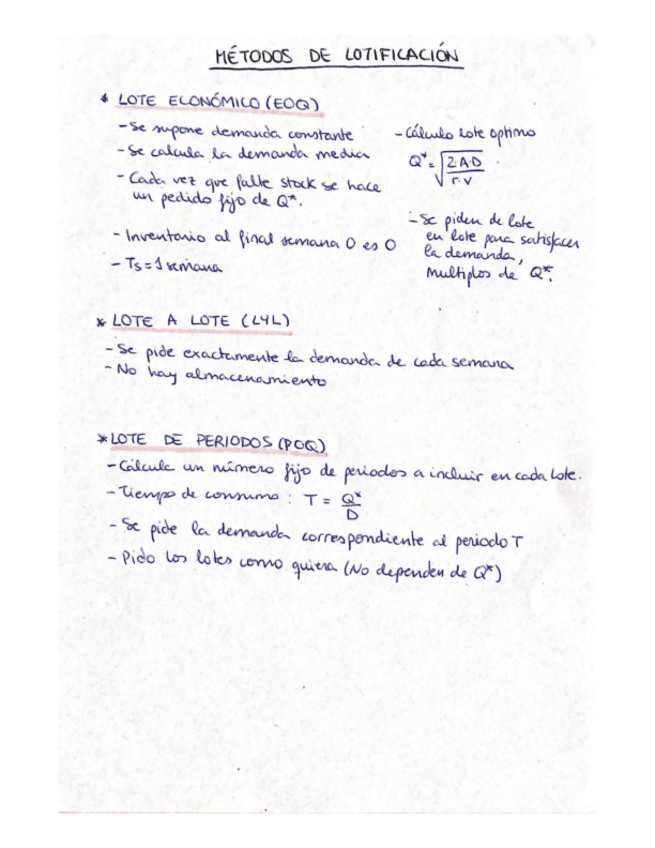 MÉTODOS DE LOTIFICACIÓN
* LOTE ECONÓMICO (EOQ)
- Se supone demanda constante
- Se calcula la demanda media
- Cada vez que falte stock se hace
un pedido fijo de Q*.
- Inventario al final semana 0 es 0
- Ts = 1 semana
- Cálculo lote optimo
Q* = √(2·A·D / r·v)
- Se piden de lote
en lote para satisfacer
la demanda,
multiplos de Q*.
* LOTE A LOTE (L4L)
- Se pide exactamente la demanda de cada semana
- No hay almacenamiento
* LOTE DE PERIODOS (POQ)
- Calcula un número fijo de periodos a incluir en cada lote.
- Tiempo de consumo : T = Q*/D
- Se pide la demanda correspondiente al periodo T
- Pido los lotes como quiera (No dependen de Q*)